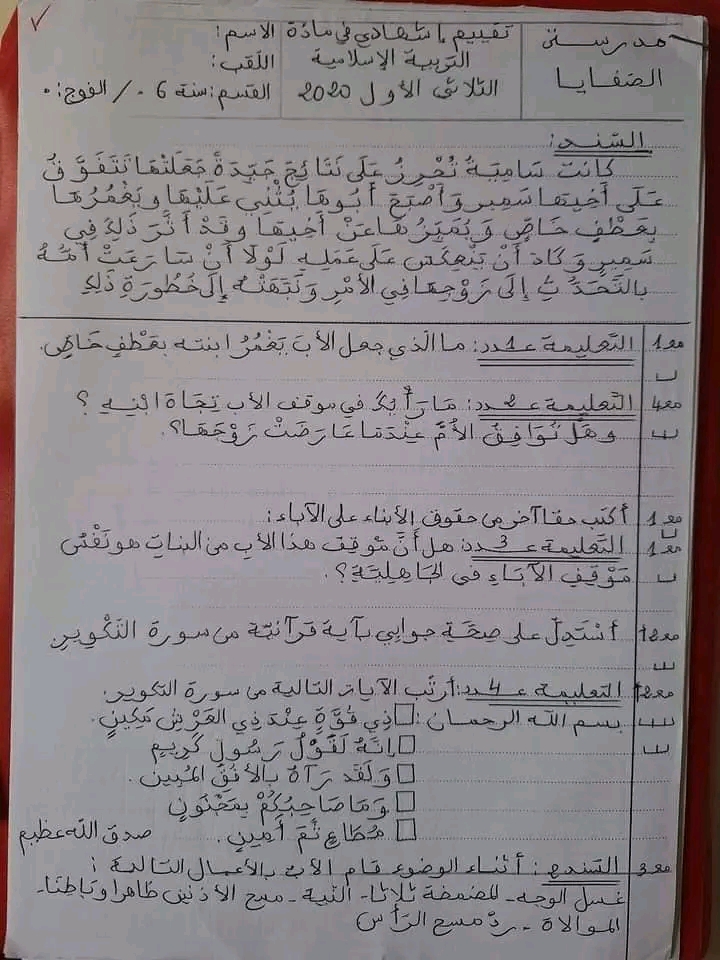 مدرسة
الصفايا
تقييم إشهادي في مادة
التربية الإسلامية
الثلاثي الأول 2020
الاسم:
اللقب:
القسم: سنة 6 / الفوج:
السند:
كانت سامية تُحْرِزُ عَلَى نَتَائِجَ جَيِّدَةً جَعَلَتْهَا تَتَفَوَّقُ
عَلَى أَخِيهَا سَمِير وَأَصْبَحَ أَبُوهَا يُثْنِي عَلَيْهَا وَيَغْمُرُهَا
بِعَطْفٍ خَاصٍّ وَيُمَيِّزُهَا عَنْ أَخِيهَا وَقَدْ أَثَّرَ ذَلِكَ فِي
سَمِيرٍ وَكَادَ أَنْ يَنْعَكِسَ عَلَى عَمَلِهِ لَوْلَا أَنْ سَارَعَتْ أُمُّهُ
بِالتَّحَدُّثِ إِلَى زَوْجِهَا فِي الأَمْرِ وَنَبَّهَتْهُ إِلَى خُطُورَةِ ذَلِكَ
مع1 التعليمة عـ1ـدد: ما الّذي جعل الأب يَغْمُرُ ابنته بعَطْفٍ خَاصٍّ.
مع4 التعليمة عـ2ـدد: مَا رَأْيُكَ في موقف الأب تِجَاهَ ابْنِهِ ؟
وهَلْ تُوَافِقُ الأُمَّ عِنْدَمَا عَارَضَتْ زَوْجَهَا؟.
مع1 أكتب حقا آخر من حقوق الأبناء على الآباء:
مع1 التعليمة عـ3ـدد: هل أنَّ مَوْقِفَ هذا الأب من البنات هو نَفْسُ
مَوْقِفِ الآبَاءِ في الجَاهِلِيَّةِ؟.
مع2 أسْتَدِلّ على صِحَّةِ جوابي بآية قرآنيّة من سورة التَّكْوِيرِ
مع2 التعليمة عـ4ـدد: أرتّب الآيات التالية من سورة التكوير.
بسم الله الرحمان: ذِي قُوَّةٍ عِنْدَ ذِي العَرْشِ مَكِينٍ.
إِنَّهُ لَقَوْلُ رَسُولٍ كَرِيمٍ
وَلَقَدْ رَآهُ بِالأُفُقِ المُبِينِ.
وَمَا صَاحِبُكُمْ بِمَجْنُونٍ
مُطَاعٍ ثَمَّ أَمِينٍ. صدق الله عظيم
مع3 السند: أثناء الوضوء قام الأب بالأعمال التالية:
غسل الوجه - المضمضة ثلاثا - النية - مسح الأذنين ظاهرا وبَاطِنًا -
الموالاة - ردّ مسح الرأس